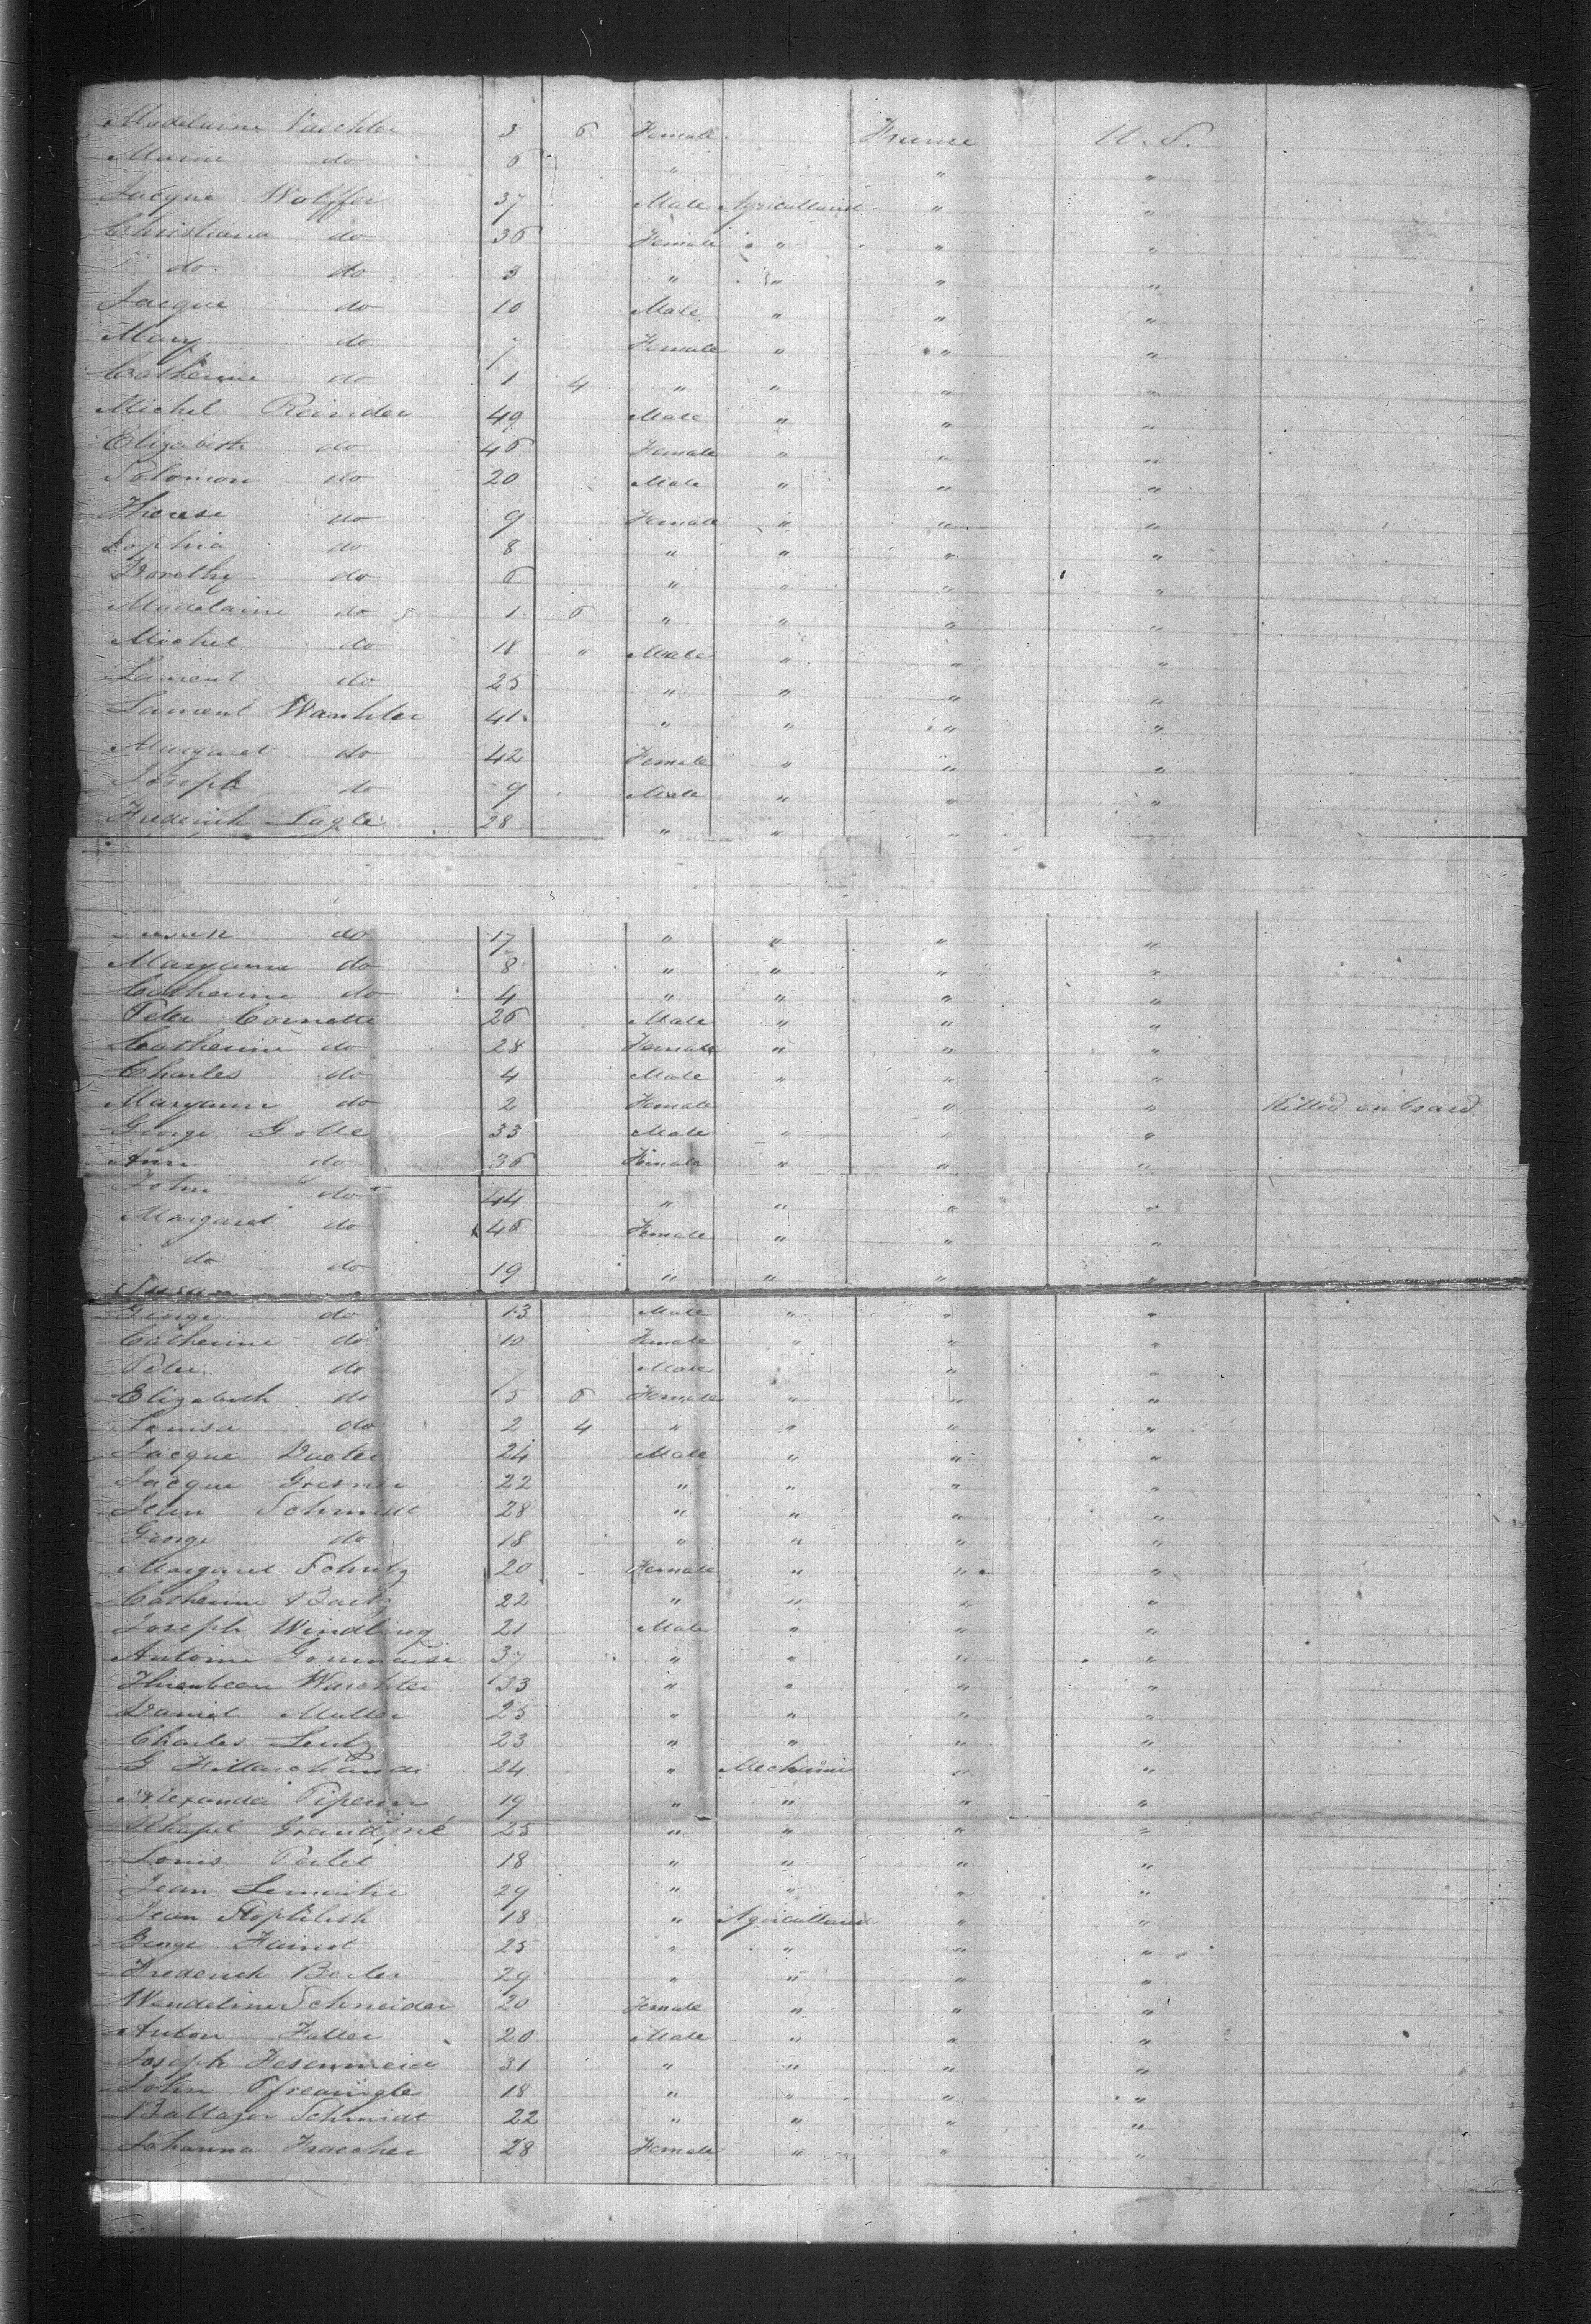 Madelaine Vaechter 3 6 Female France U. S.
Marie do 6 " " "
Jacque Wolffer 37 Male Agriculturist " "
Christiana do 36 Female " " "
do do 3 " " " "
Jacque do 10 Male " " "
Mary do 7 Female " " "
Catherine do 1 4 " " " "
Michel Reinder 49 Male " " "
Elizabeth do 46 Female " " "
Solomon do 20 Male " " "
Therese do 9 Female " " "
Sophia do 8 " " " "
Dorothy do 6 " " " "
Madelaine do 1 6 " " " "
Michel do 18 " Male " " "
Laurent do 25 " " " "
Laurent Wachter 41 " " " "
Margaret do 42 Female " " "
Joseph do 9 Male " " "
Frederick Lagle 28 " " " "
do 17 " " " "
Maryann do 8 " " " "
Catherine do 4 " " " "
Peter Cornette 26 Male " " "
Catherine do 28 Female " " "
Charles do 4 Male " " "
Maryann do 2 Female " " Killed on board
George Golle 33 Male " " "
Ann do 36 Female " " "
John do 44 " " " "
Margaret do 46 Female " " "
do do 19 " " " "
Susan
George do 13 Male " " "
Catherine do 10 Female " " "
Peter do 7 Male " " "
Elizabeth do 5 6 Female " " "
Louisa do 2 4 " " " "
Jacque Vaeter 24 Male " " "
Jacque Gresner 22 " " " "
Jean Schmidt 28 " " " "
George do 18 " " " "
Margaret Schutz 20 Female " " "
Catherine 22 " " " "
Joseph Windling 21 Male " " "
Antoine 37 " " " "
Waechter 33 " " " "
Daniel Muller 25 " " " "
Charles Lentz 23 " " " "
G F Marchand 24 " Mechanic " "
Alexander 19 " " " "
Grandjné 25 " " " "
Louis Perlet 18 " " " "
Jean 29 " " " "
Jean 18 " Agriculturist " "
George Hainot 25 " " " "
Frederick Beiler 29 " " " "
Wendeline Schneider 20 Female " " "
Anton Faller 20 Male " " "
Joseph Fesenmeier 31 " " " "
John Pfreangle 18 " " " "
Baltazer Schmidt 22 " " " "
Johanna Fraecher 28 Female " " "